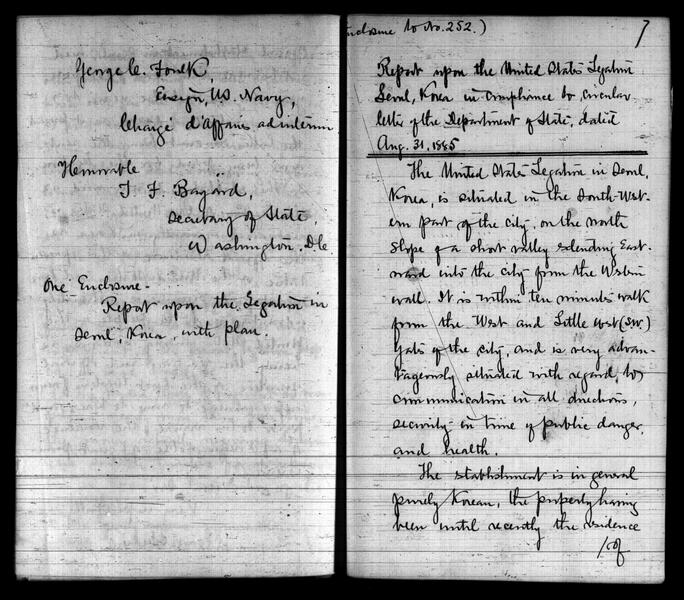 George C. Foulk,
Ensign, U.S. Navy,
Chargé d'affaires ad interim
Honorable
T. F. Bayard,
Secretary of State,
Washington, D.C.
One Enclosure -
Report upon the Legation in
Seoul, Korea, with plan.
Enclosure to No. 252.)
Report upon the United States Legation
Seoul, Korea in compliance to circular
letter of the Department of State, dated
Aug. 31, 1885
The United States Legation in Seoul,
Korea, is situated in the South-West-
ern part of the city, on the north
slope of a short valley extending East-
ward into the city from the Western
wall. It is within ten minutes walk
from the West and Little West (SW.)
Gate of the city, and is very advan-
tageously situated with regard to
communication in all directions,
security in time of public danger,
and health.
The establishment is in general
purely Korean, the property having
been until recently the residence
/of